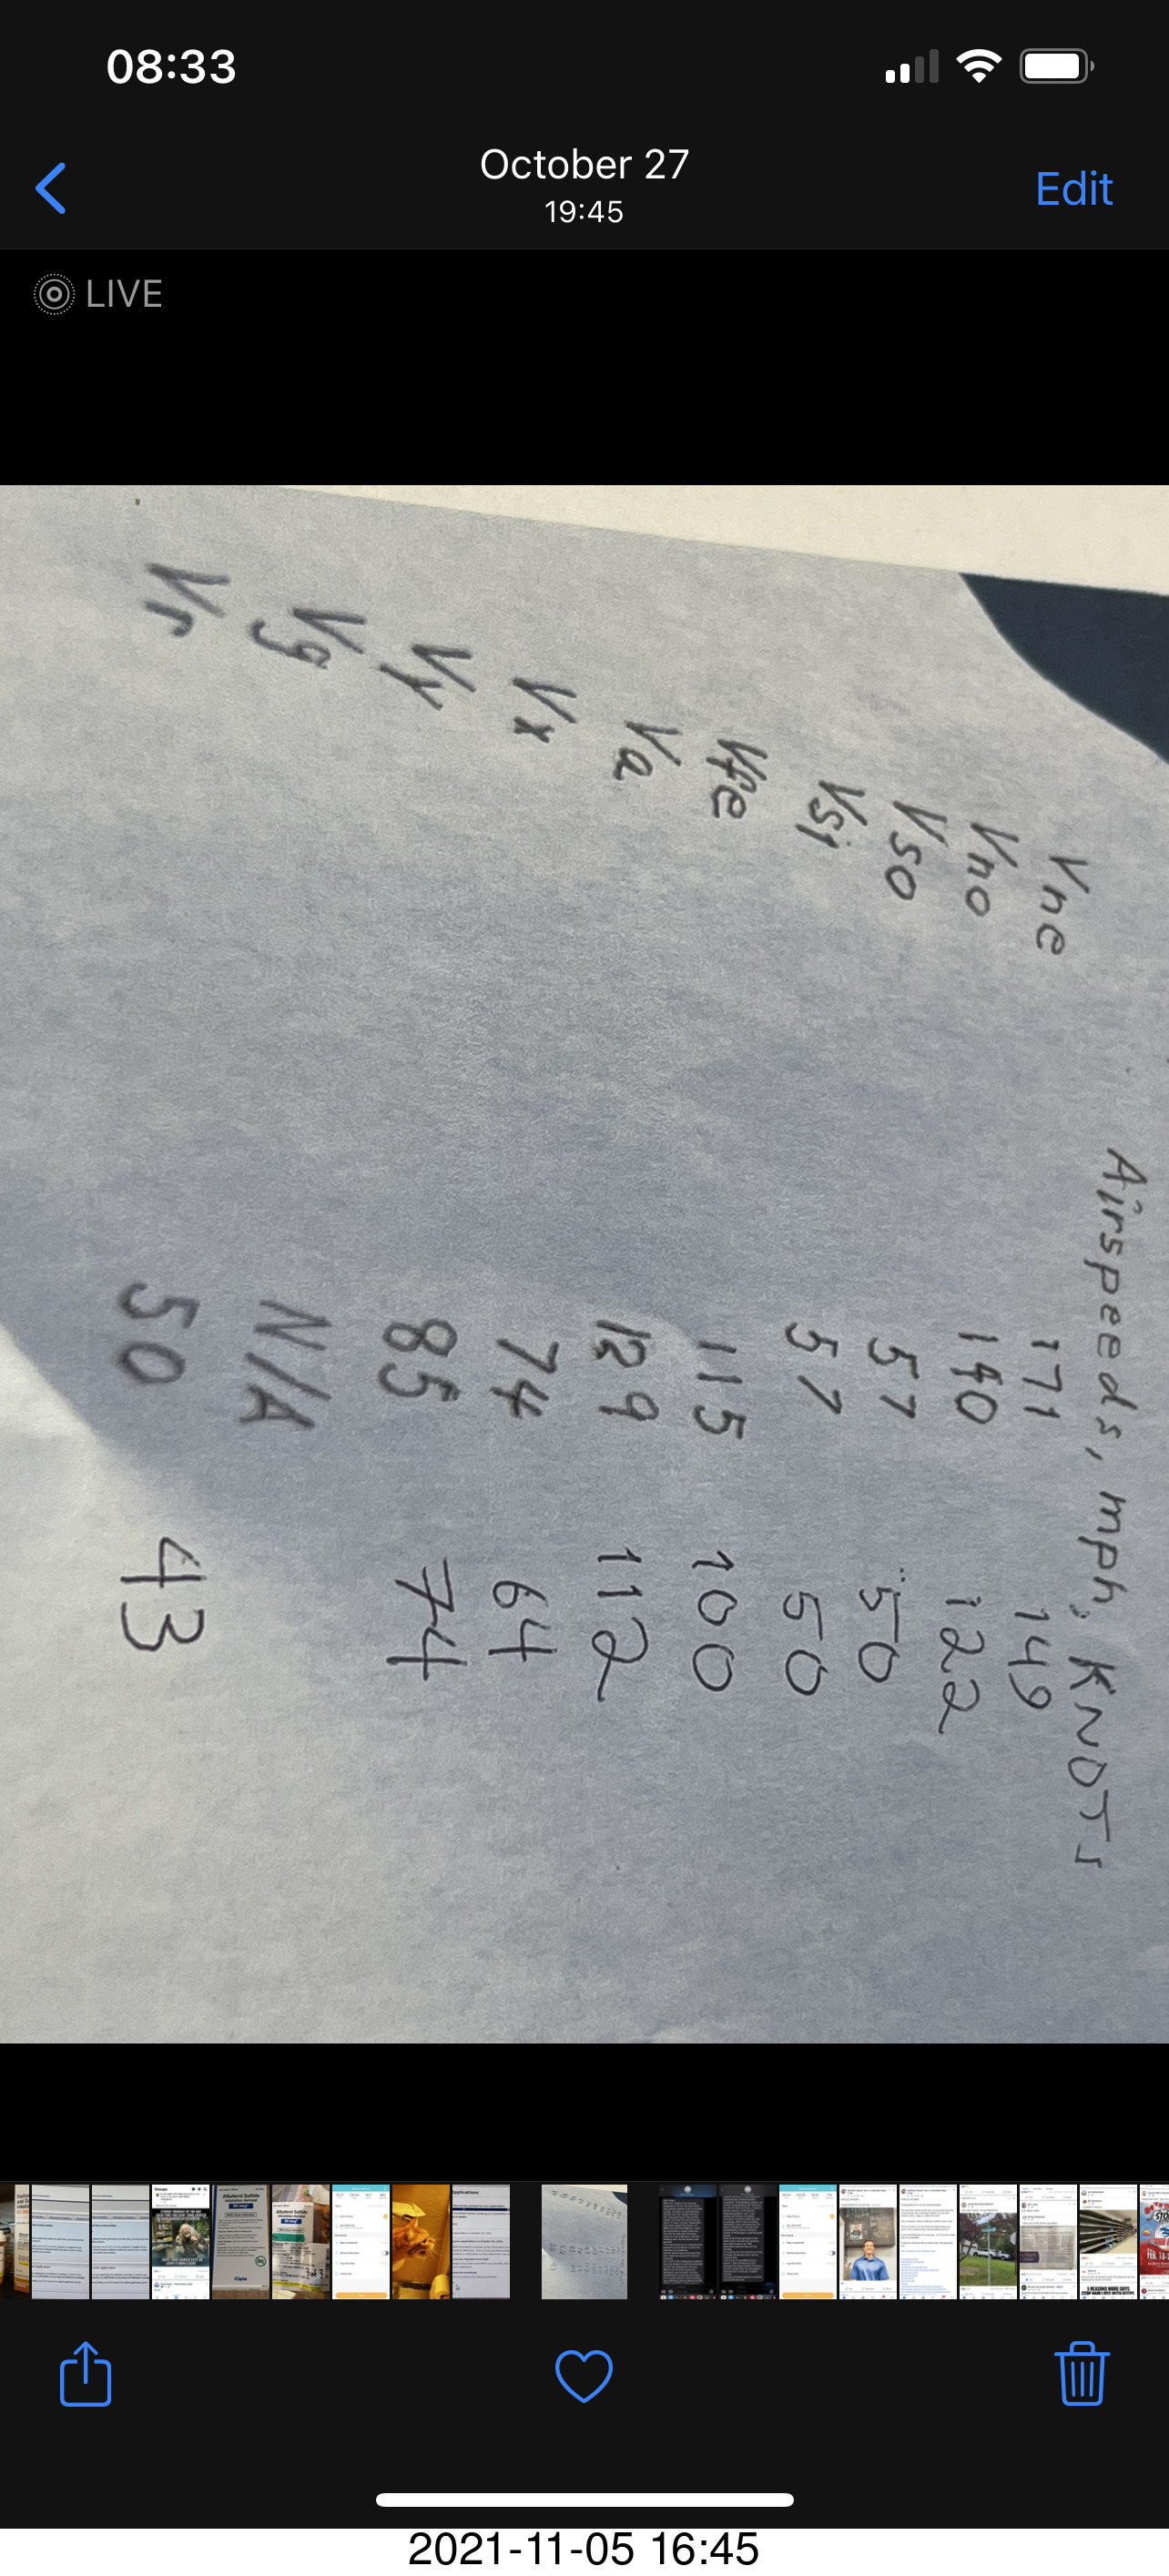 08:33
October 27
19:45
Edit
LIVE
Airspeeds, mph, KNOTS
Vne 171 149
Vno 140 122
Vso 57 50
Vs1 57 50
Vfe 115 100
Va 129 112
Vx 74 64
Vy 85 74
Vg N/A
Vr 50 43
2021-11-05 16:45